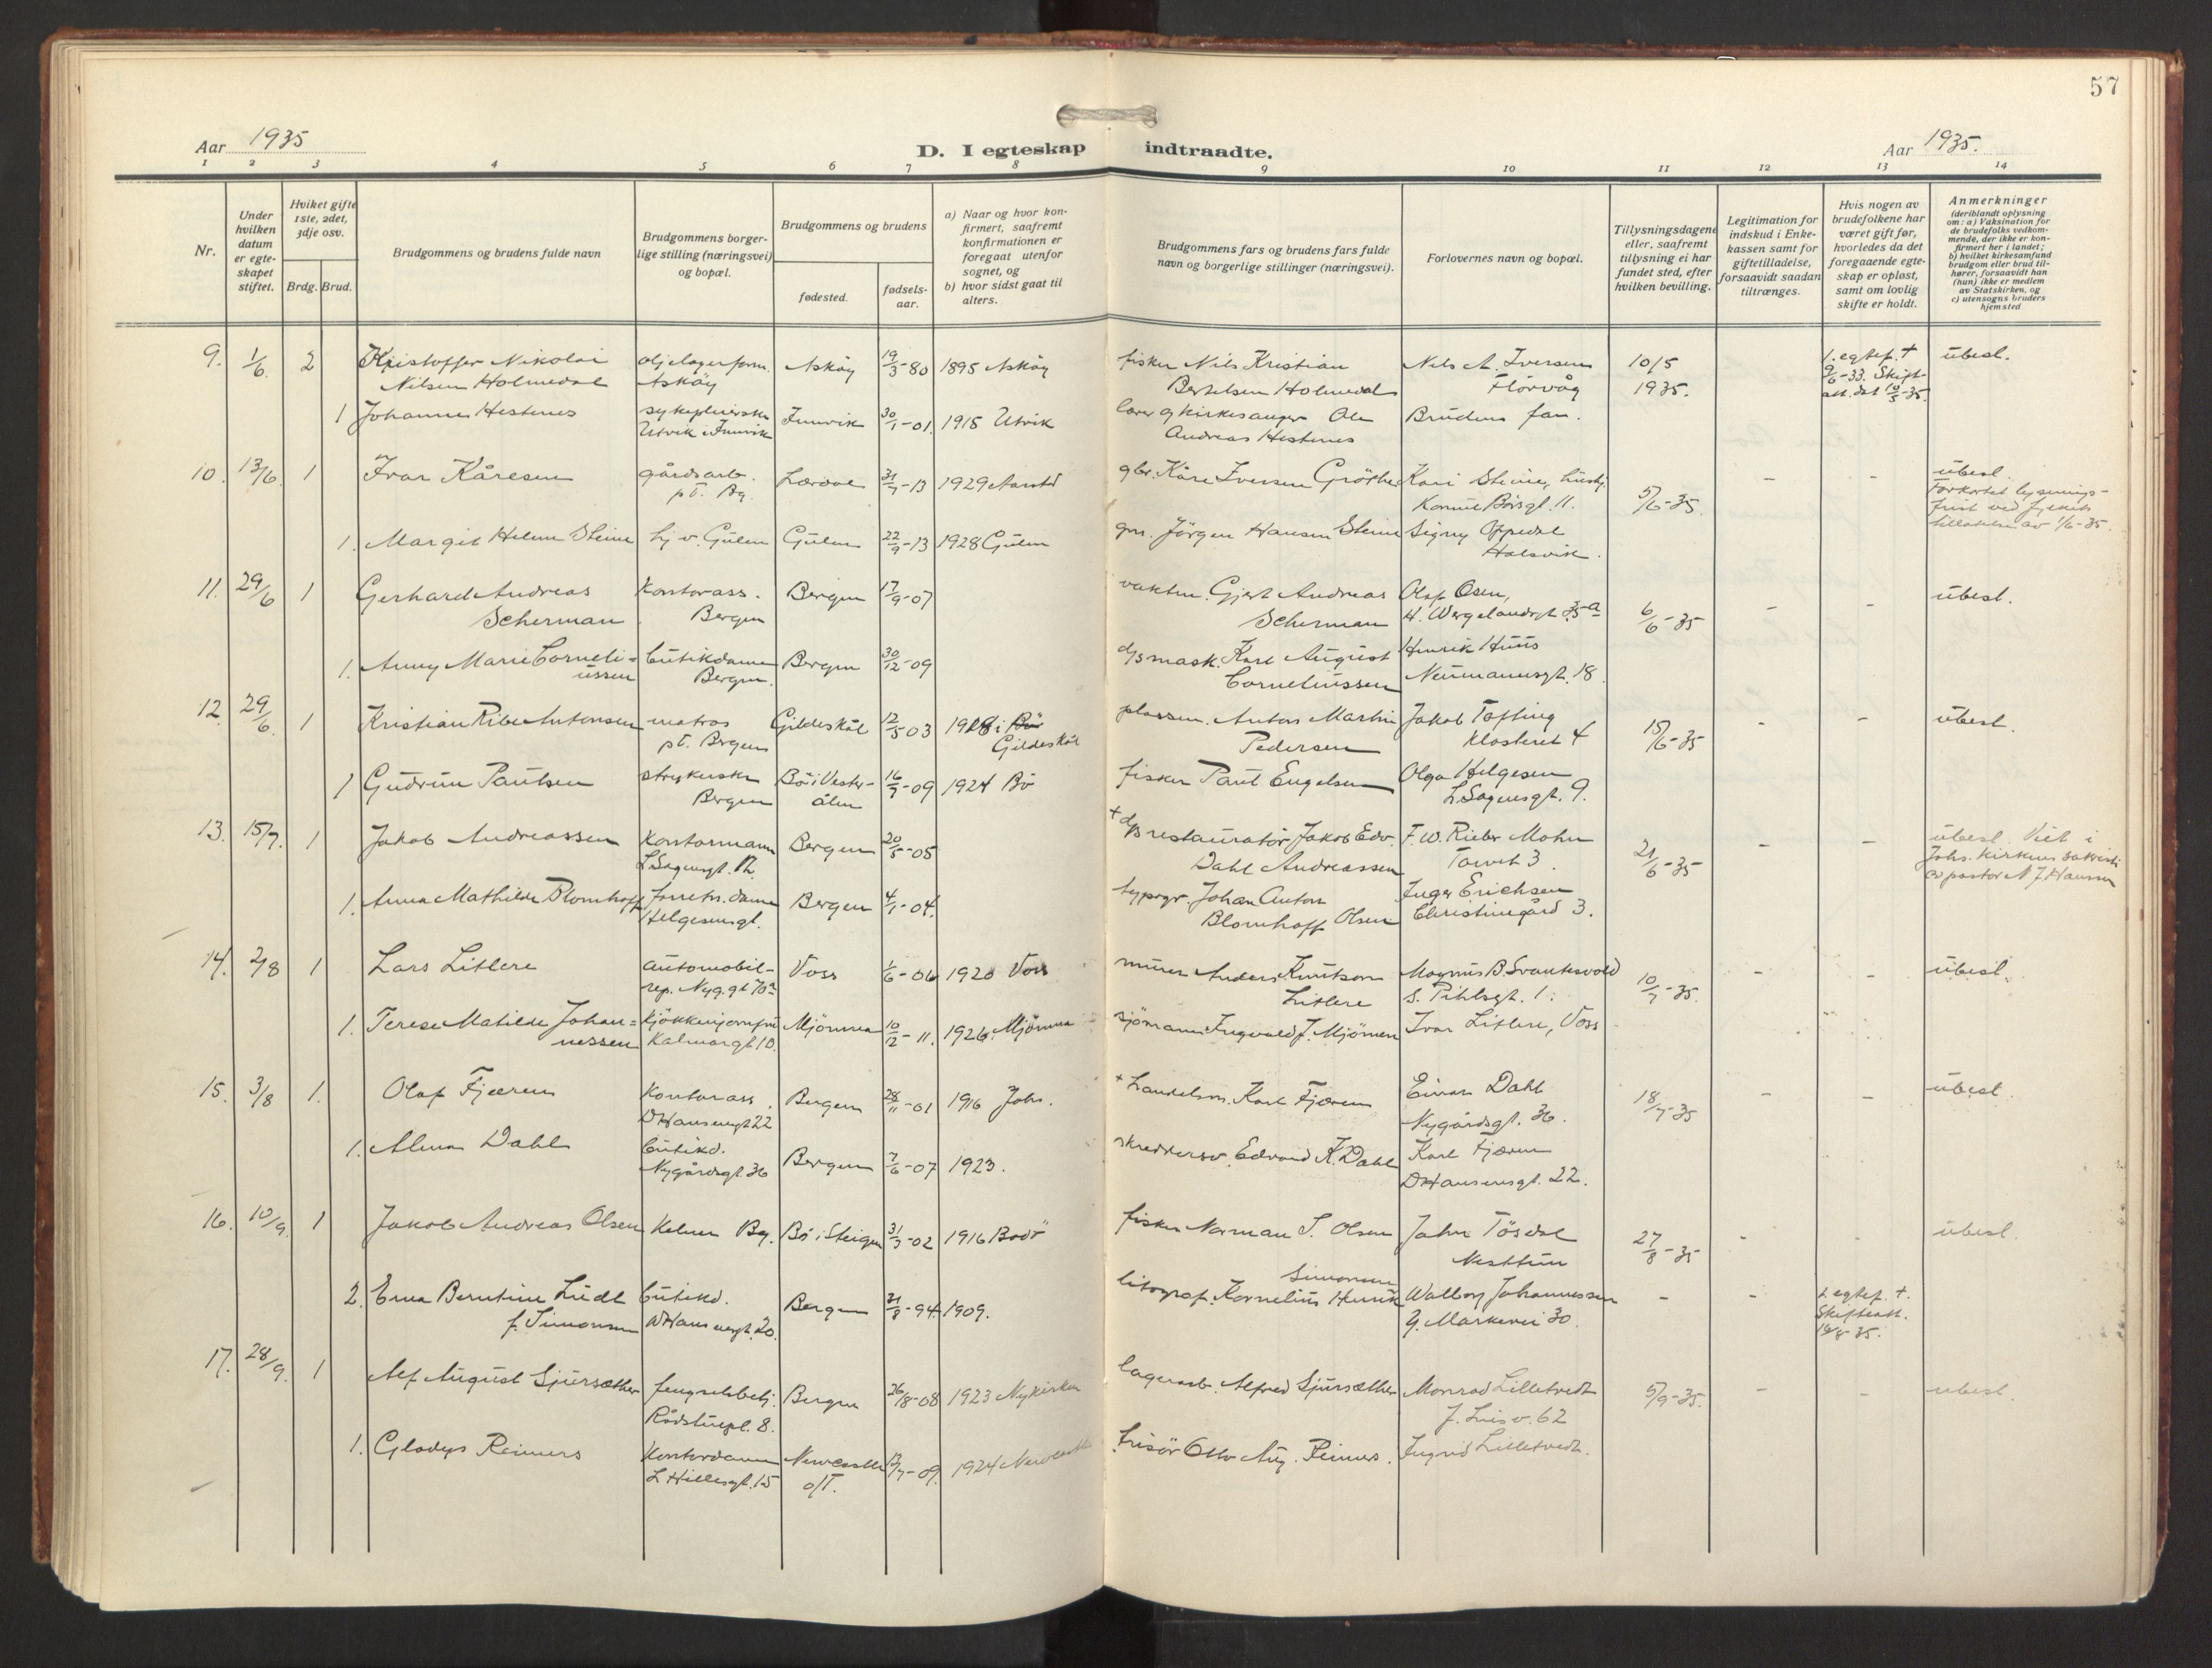 57
Aar 1935
D. I egteskap indtraadte.
Aar 1935.
1 2 3 4 5 6 7 8 9 10 11 12 13 14
Nr.
Under hvilken datum er egteskapet stiftet.
Hviket gifte 1ste, 2det, 3dje osv.
Brdg. Brud.
Brudgommens og brudens fulde navn
Brudgommens borgerlige stilling (næringsvei) og bopæl.
Brudgommens og brudens
fødested.
fødselsaar.
a) Naar og hvor konfirmert, saafremt konfirmationen er foregaat utenfor sognet, og
b) hvor sidst gaat til alters.
Brudgommens fars og brudens fars fulde navn og borgerlige stillinger (næringsvei).
Forlovernes navn og bopæl.
Tillysningsdagene eller, saafremt tillysning ei har fundet sted, efter hvilken bevilling.
Legitimation for indskud i Enkekassen samt for giftetilladelse, forsaavidt saadan tiltrænges.
Hvis nogen av brudefolkene har været gift før, hvorledes da det foregaaende egteskap er opløst, samt om lovlig skifte er holdt.
Anmerkninger
(deriblandt oplysning om: a) Vaksination for de brudefolks vedkommende, der ikke er konfirmert her i landet; b) hvilket kirkesamfund brudgom eller brud tilhører, forsaavidt han (hun) ikke er medlem av Statskirken, og c) utensogns bruders hjemsted
9. 1/6 2 Kristoffer Nikolai oljelagerform. Askøy 19/3-80 1895 Askøy fisker Nils Kristian Nels A. Iversen 10/5 1. egtef. + ubesl.
Nilsen Holmedal Askøy Bertelsen Holmedal Florvåg 1935. 9/6-33. Skift-
att. dat 10/5-35.
1 Johanne Hestenes sykepleierske Innvik 30/1-01. 1915 Utvik lærer og kirkesanger Ole Brudens far.
Utvik i Innvik Andreas Hestenes
10. 13/6 1 Ivar Kåresen gårdsarb. Lærdal 31/7-13 1929 Aarstad gbr. Kåre Iversen Kari Steine, hustj. 5/6-35. - - ubesl.
pt. Bg. Konnul Børsgt. 11. Forkortet lysnings-
frist ved
tillatelse av 1/6-35.
1. Margit Helene Steine hj. v. Gulen Gulen 22/9-13 1928 Gulen gm. Jörgen Hansen Steine Signy Oppedal
11. 29/6 1 Gerhard Andreas Kontorass. Bergen 17/9-07 vaktm. Gjert Andreas Olaf Osen, 6/6-35 - - ubesl.
Scherman Bergen Scherman H. Wergelandsgt 35 a
1. Anny Marie Corneli= butikdame Bergen 30/12-09 d/s mask. Karl August Henrik Huus
ussen Bergen. Corneliussen Neumannsgt. 18.
12. 29/6 1 Kristian Ribe Antonsen matros Gildeskål 12/5 03 1918 i Bö plassm. Anton Martin Jakob Tofting 15/6-35 - - ubesl.
pt. Bergen Gildeskål Pedersen Klosteret 4
1 Gudrun Paulsen strykerske Bö i Vester- 16/7-09 1924 Bö fisker Paul Engelsen Olga Helgesen
Bergen ålen L. Sagensgt. 9.
13. 15/7. 1 Jakob Andreassen Kontormann Bergen 20/5-05 + d/s restauratör Jakob Edv. F. W. Rieber Mohn 21/6-35 - - ubesl. Viet i
L. Sagensgt. 12. Dahl Andreassen Torvet 3. Johs. kirkens sakristi
av pastor N. J. Hansen
1. Anna Mathilde Blomhoff forretn. dame Bergen 4/1-04. typogr. Johan Anton Inger Erichsen
Helgesensgt. Blomhoff Olsen Christinegård 3.
14. 2/8 1 Lars Litlere automobil- Voss 1/6-06 1920 Voss murer Anders Knutson Magnus B. Svartevold 10/7-35. - - ubesl.
rep. Nyg.gt 70a Litlere S. Pihlsgt. 1.
1. Terese Matilde Johan= kjökkenjomfru Mjömna 10/12-11. 1926. Mjömna sjömann Ingvald J. Mjömen Ivar Litlere, Voss
nessen Kalmargt 10.
15. 3/8 1. Olaf Fjæren Kontorass. Bergen 28/11-01 1916 Johs. + handelsm. Karl Fjæren Einar Dahl 18/7-35 - - ubesl.
D Hansensgt 22 Nygårdsgt. 36.
1. Alma Dahl butikd. Bergen 7/6-07 1923. skreddersv. Edvard K. Dahl Karl Fjæren
Nygårdsgt. 36 D Hansensgt. 22.
16. 10/9. 1 Jakob Andreas Olsen Kelner Bg. Bö i Steigen 31/3-02 1916 Bodö fisker Norman S. Olsen John Tösdal 27/8-35 - - ubesl.
Nesttun
2. Erna Berntine Lüdt butikd. Bergen 31/8-94 1909. litograf. Kornelius Henrik Simonsen Walborg Johannessen - - 1. egtef. +.
f. Simonsen D Hansensgt. 20. G. Markevei 30. Skifteatt.
16/8-35.
17. 28/9. 1 Alf August Sjursæther fengselsbetj. Bergen 26/8-08 1923 Nykirken lagerarb. Alfred Sjursæther Monrad Lilletvedt 5/9-35. - - ubesl.
Rådstuepl. 8. J. Liesv. 62
1. Gladys Reimers Kontordame Newcastle 12/7-09. 1924 Newcastle frisör Otto Aug. Reimers. Ingrid Lilletvedt.
L Hillesgt. 15 o/T.